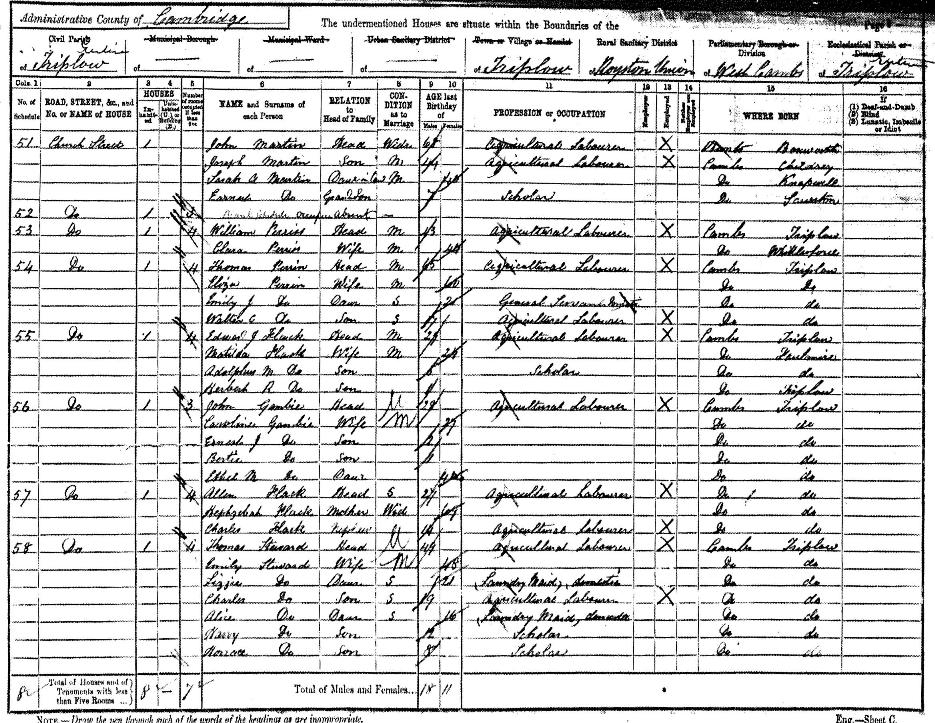 Administrative County of Cambridge
The undermentioned Houses are situate within the Boundaries of the
Page
Civil Parish Municipal Borough Municipal Ward Urban Sanitary District Town or Village or Hamlet Rural Sanitary District Parliamentary Borough or Division Ecclesiastical Parish or District
of Triplow of of of of Triplow of Royston Union of West Cambs of Triplow
Cols. 1 2 3 4 5 6 7 8 9 10 11 12 13 14 15 16
No. of Schedule ROAD, STREET, &c., and No. or NAME of HOUSE HOUSES Inhabited Uninhabited (U.) or Building (B.) Number of rooms occupied if less than five NAME and Surname of each Person RELATION to Head of Family CONDITION as to Marriage AGE last Birthday of Males Females PROFESSION or OCCUPATION Employer Employed WHERE BORN If (1) Deaf-and-Dumb (2) Blind (3) Lunatic, Imbecile or Idiot
51 Church Street 1 John Martin Head Agricultural Labourer X
Joseph Martin Son M 44 Agricultural Labourer X Cambs Childrey
Sarah A Martin Daur in law M Do Knapwell
Earnest Do Grandson 7 Scholar Do Sawston
52 Do 1 3 Absent —
53 Do 1 4 William Perrin Head M 43 Agricultural Labourer X Cambs Triplow
Clara Perrin Wife M Do
54 Do 1 4 Thomas Perrin Head M 65 Agricultural Labourer X Cambs Triplow
Eliza Perrin Wife M Do Do
Emily J Do Daur S General Servant Do do
Walter C Do Son S 17 Agricultural Labourer X Do do
55 Do 1 4 Edward J Flack Head M Agricultural Labourer X Cambs Triplow
Matilda Flack Wife M Do
Adolphus M. Do Son Scholar Do do
Herbert R Do Son Do Triplow
56 Do 1 3 John Gambie Head M 29 Agricultural Labourer X Cambs Triplow
Caroline Gambie Wife M 27 Do do
Ernest J Do Son 2 Do do
Bertie Do Son 1 Do do
Ethel M Do Daur Do do
57 Do 1 4 Allen Flack Head S 27 Agricultural Labourer X Do do
Hephzebah Flack Mother Wid Do do
Charles Flack Nephew Agricultural Labourer X Do do
58 Do 1 4 Thomas Steward Head M 49 Agricultural Labourer X Cambs Triplow
Emily Steward Wife M 48 Do do
Lizzie Do Daur S 21 Laundry Maid, domestic Do do
Charles Do Son S 19 Agricultural Labourer X Do do
Alice Do Daur S 16 Laundry Maid, domestic Do do
Harry Do Son 12 Scholar Do do
Horrace Do Son 8 Scholar Do do
8 Total of Houses and of Tenements with less than Five Rooms 8 — 7 Total of Males and Females... 18 11
NOTE.—Draw the pen through such of the words of the headings as are inappropriate. Eng.—Sheet C.